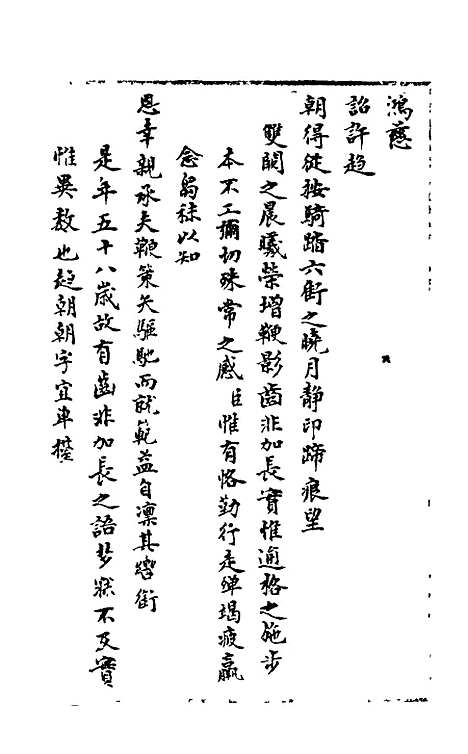 鴻慈
詔許趨
朝得從按騎踏六街之曉月靜印蹄痕望
雙闕之晨曦榮增鞭影齒非加長實惟逾格之施步
本不工彌切殊常之感臣惟有恪勤行走殫竭疲羸
念芻秣以知
恩幸親承夫鞭策矢驅馳而就範益自凜其轡銜
是年五十八歲故有齒非加長之語夢寐不及實
惟異數也趨朝朝字宜單擡